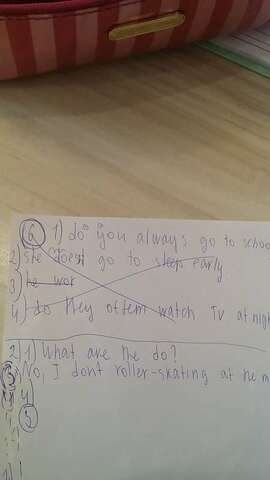 6 1) do you always go to schoo
2) she doesn't go to sleep early
3) he wor
4) do they oftem watch TV at nigh
2 1) What are the do?
No, I dont roller-skating at he m
4
5